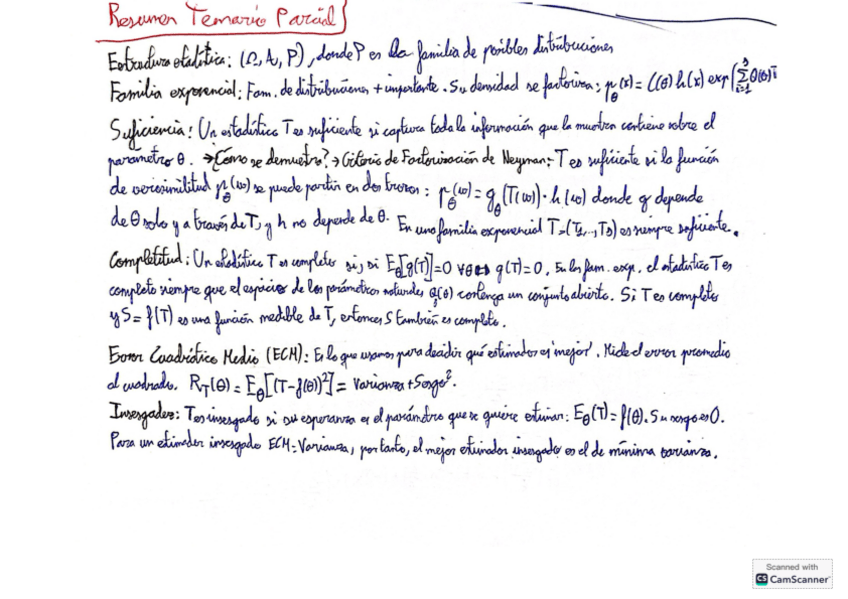 Resumen Temario Parcial
Estructura estadística: (Ω, A, P), donde P es la familia de posibles distribuciones
Familia exponencial: Fam. de distribuciones + importante. Su densidad se factoriza: p_θ(x) = C(θ) h(x) exp(∑_{i=1}^{s} Q(θ)T
Suficiencia: Un estadístico T es suficiente si captura toda la información que la muestra contiene sobre el
parámetro θ. → ¿Cómo se demuestra? → Criterio de Factorización de Neyman: T es suficiente si la función
de verosimilitud p_θ(ω) se puede partir en dos trozos: p_θ(ω) = g_θ(T(ω)) · h(ω) donde g depende
de θ solo y a través de T, y h no depende de θ. En una familia exponencial T=(T1,..,Ts) es siempre suficiente.
Completitud: Un estadístico T es completo si, si E_θ[g(T)]=0 ∀θ g(T)=0. En las fam. exp. el estadístico T es
completo siempre que el espacio de los parámetros naturales Q_j(θ) contenga un conjunto abierto. Si T es completo
y S = f(T) es una función medible de T, entonces S también es completo.
Error Cuadrático Medio (ECM): Es lo que usamos para decidir qué estimador es 'mejor'. Mide el error promedio
al cuadrado. R_T(θ) = E_θ[(T-f(θ))²] = Varianza + Sesgo².
Insesgadez: T es insesgado si su esperanza es el parámetro que se quiere estimar: E_θ(T) = f(θ). Su sesgo es 0.
Para un estimador insesgado ECM = Varianza, por tanto, el mejor estimador insesgado es el de mínima varianza.
Scanned with
CS CamScanner